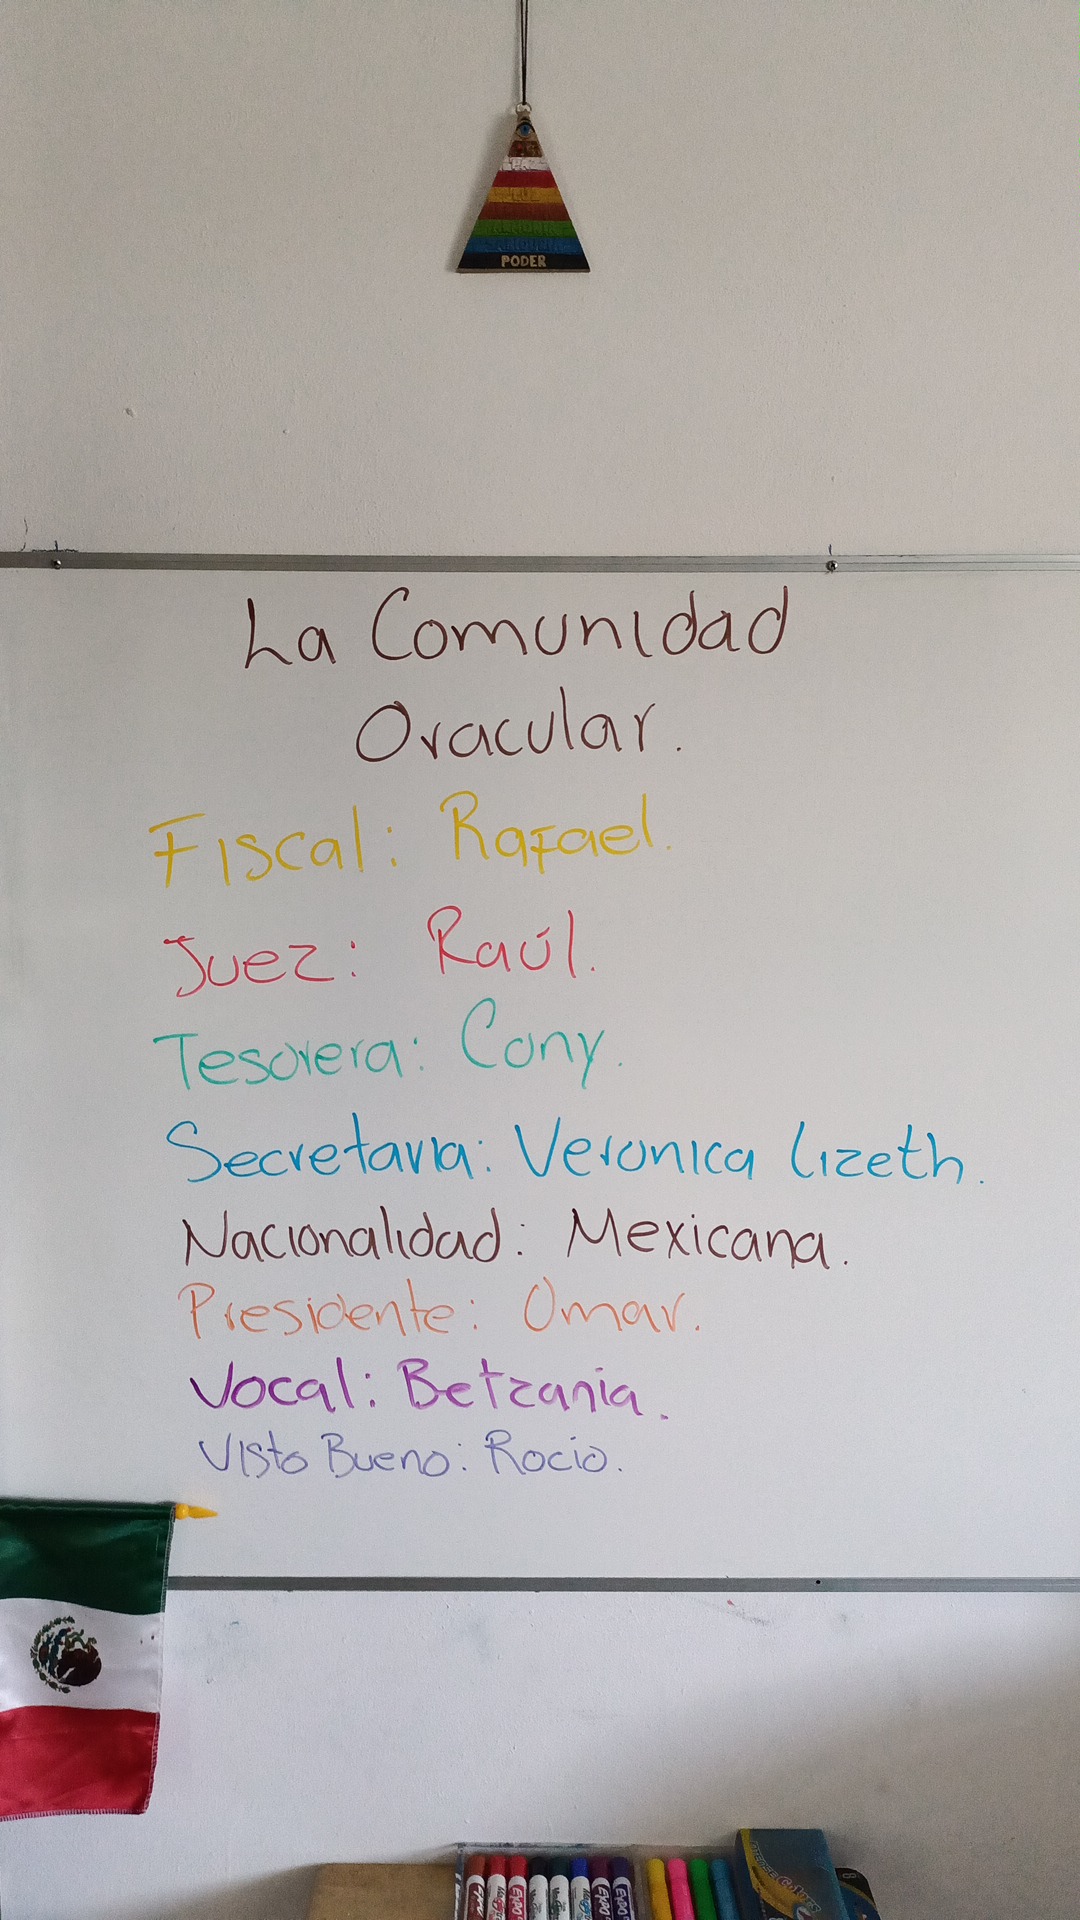 PODER
La Comunidad
Oracular.
Fiscal: Rafael.
Juez: Raúl.
Tesorera: Cony.
Secretaria: Veronica Lizeth.
Nacionalidad: Mexicana.
Presidente: Omar.
Vocal: Betzania.
Visto Bueno: Rocio.
EXPO
EXPO
EXPO
EXPO